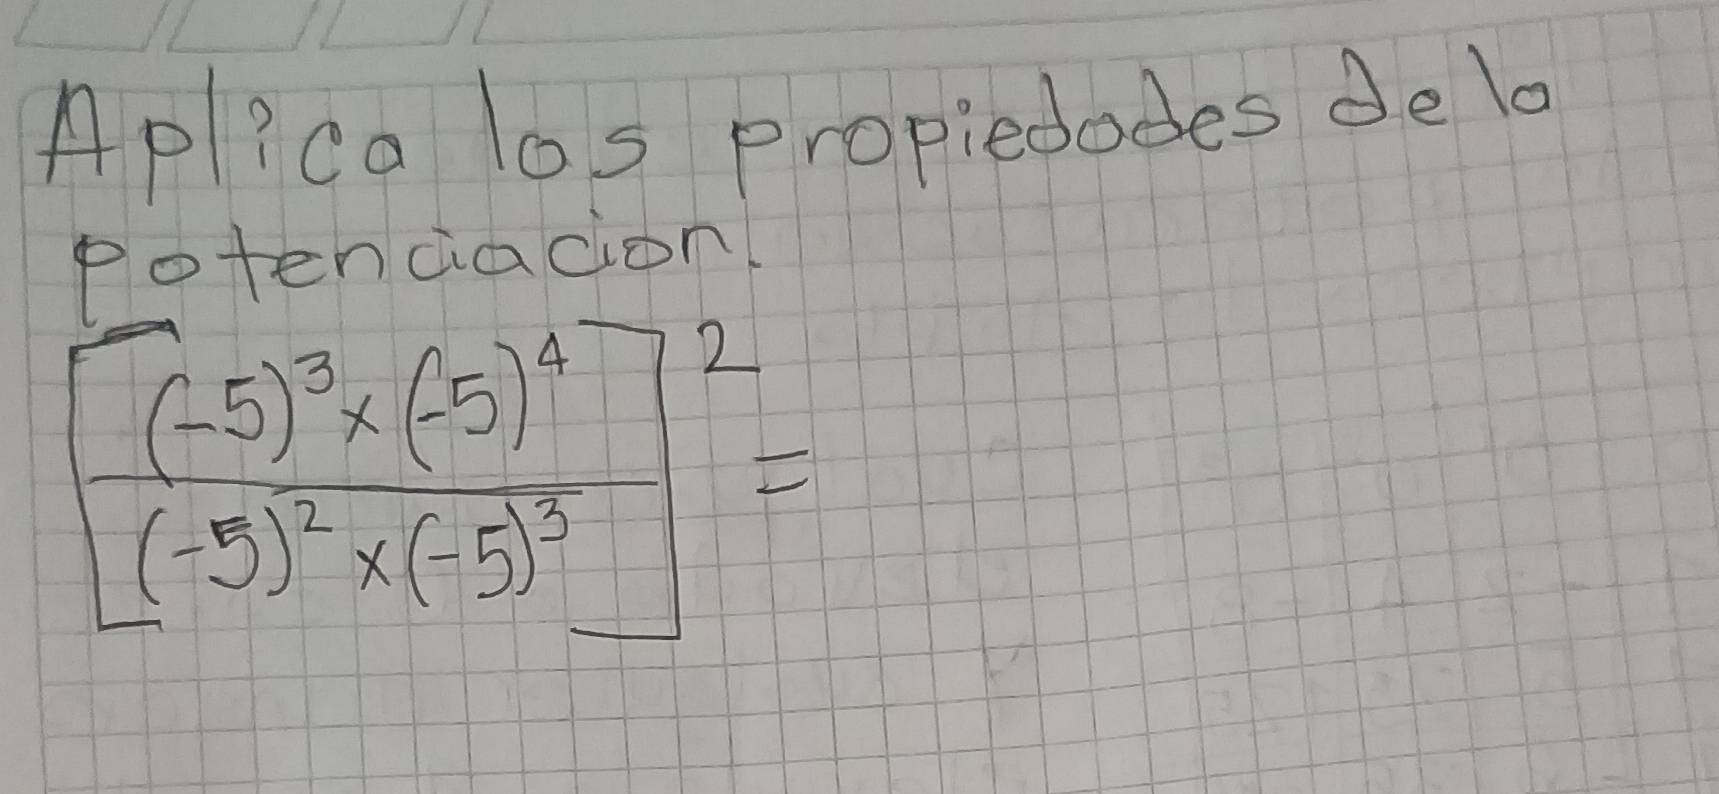 Aplica las propiedades de la
potenciacion.
[(-5)³ x (-5)⁴ / (-5)² x (-5)³]² =